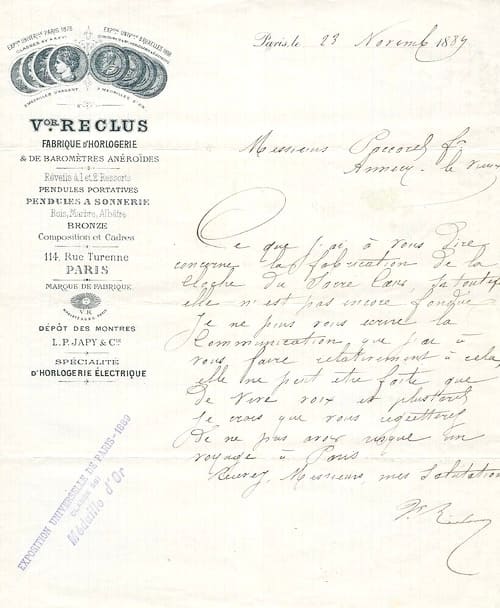 EXPon UNIVERle PARIS 1878
CLASSES
EXPon UNIVle BRUXELLES 1888
2 MEDAILLES D'ARGENT
2 MEDAILLES D'OR
Vor RECLUS
FABRIQUE D'HORLOGERIE
& DE BAROMÈTRES ANÉROÏDES
Réveils à 1 et 2 Ressorts
PENDULES PORTATIVES
PENDULES A SONNERIE
Bois, Marbre, Albâtre
BRONZE
Composition et Cadres
114, Rue Turenne
PARIS
MARQUE DE FABRIQUE
V.R
DÉPÔT DES MONTRES
L.P. JAPY & Cie
SPÉCIALITÉ
D'HORLOGERIE ÉLECTRIQUE
EXPOSITION UNIVERSELLE DE PARIS - 1889
CLASSE
Médaille d'Or
Paris, le 23 Novemb 1889
Messieurs Paccard fr
Annecy - le Vieux
Ce que j'ai à vous dire
concerne la fabrication de la
Cloche du Sacré Cœur, si toutef
elle n'est pas encore fondue
Je ne puis vous écrire la
Communication que j'ai à
vous faire relativement à cela,
elle ne peut etre faite que
de vive voix et
Je crois que vous
de ne pas avoir risqué un
voyage à Paris
Recevez, Messieurs, mes Salutation
Vr Reclus